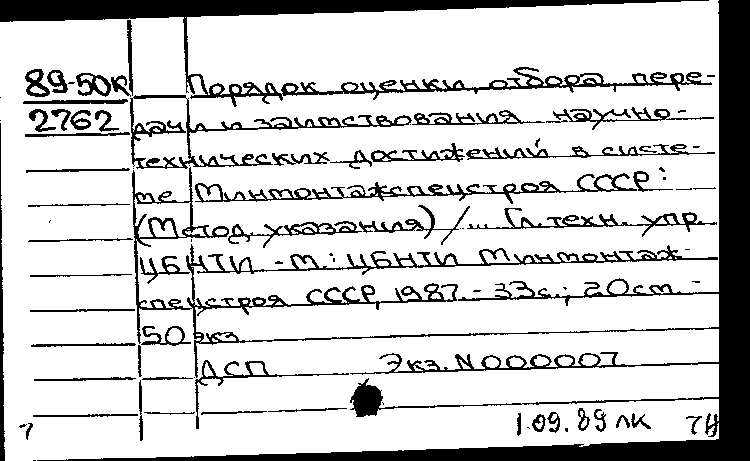 89-50К Порядок оценки, отбора, пере-
2762 дачи и заимствования научно-
технических достижений в систе-
ме Минмонтажспецстроя СССР:
(Метод. указания) /... Гл. техн. упр.
ЦБНТИ - М.: ЦБНТИ Минмонтаж-
спецстроя СССР, 1987. - 33с.; 20см. -
50 экз.
ДСП Экз. N000007
1.09.89 ЛК
7